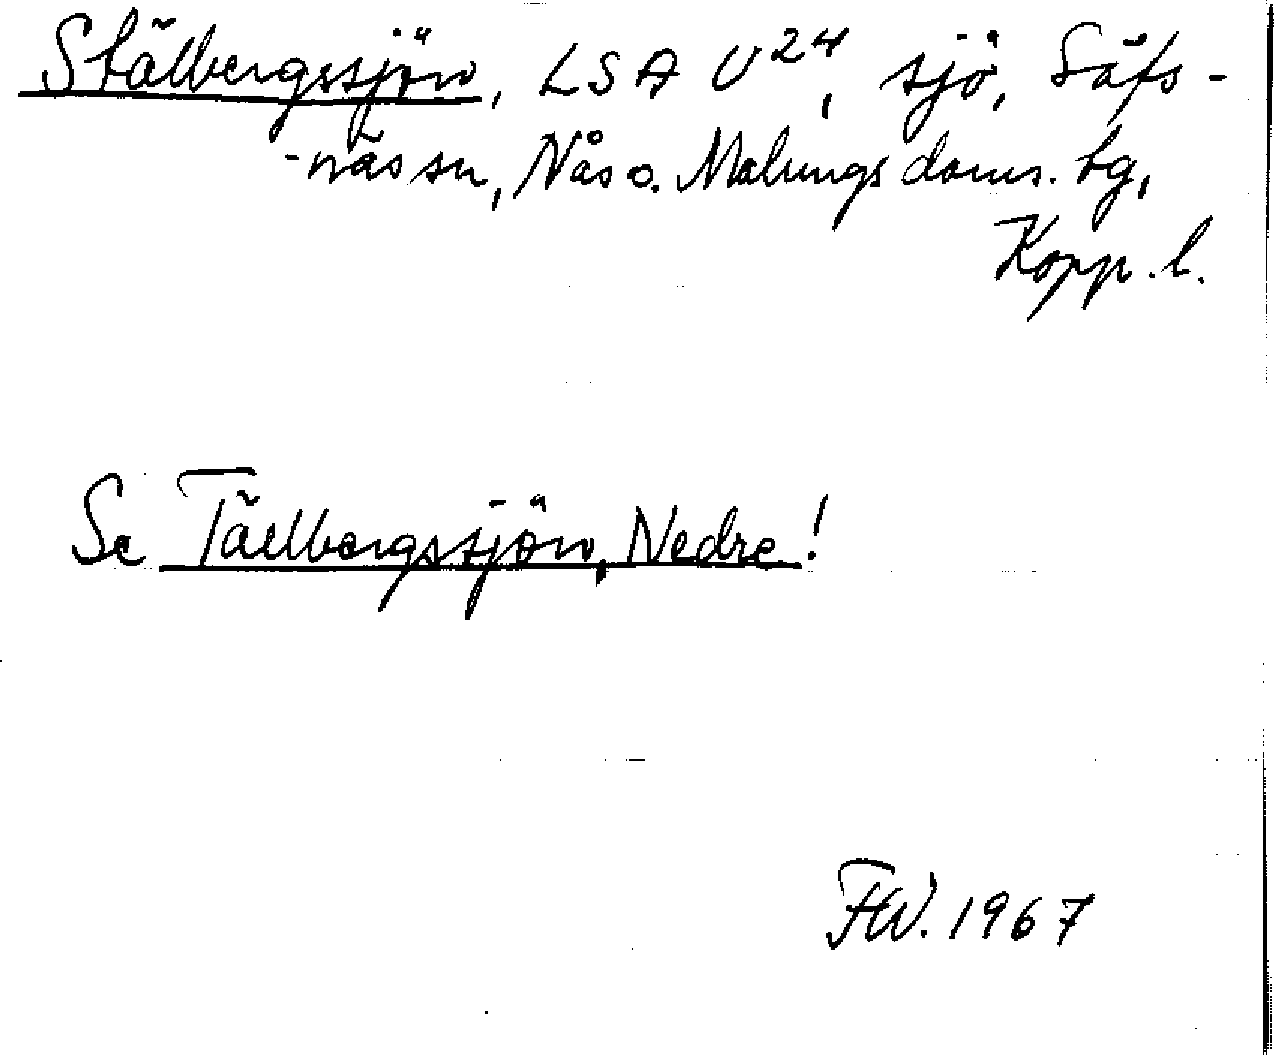 Stälbergssjön, LSA U24, sjö, Säfs-
-näs sn, Nås o. Malungs doms. tg,
Kopp. l.
Se Tällbergssjön, Nedre!
FW. 1967